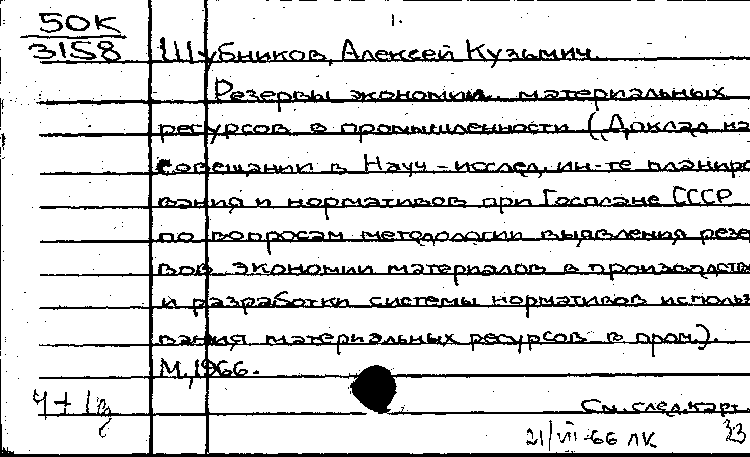 1.
50К
3158
Шубников, Алексей Кузьмич.
Резервы экономии материальных
ресурсов в промышленности (Доклад на
совещании в Науч-исслед, ин-те планиро
вания и нормативов при Госплане СССР
по вопросам методологии выявления резер
вов экономии материалов в производстве
и разработки системы нормативов использо
вания материальных ресурсов в пром.).
М., 1966.
4+1
См. след. карт.
21/VII-66 ЛК 33